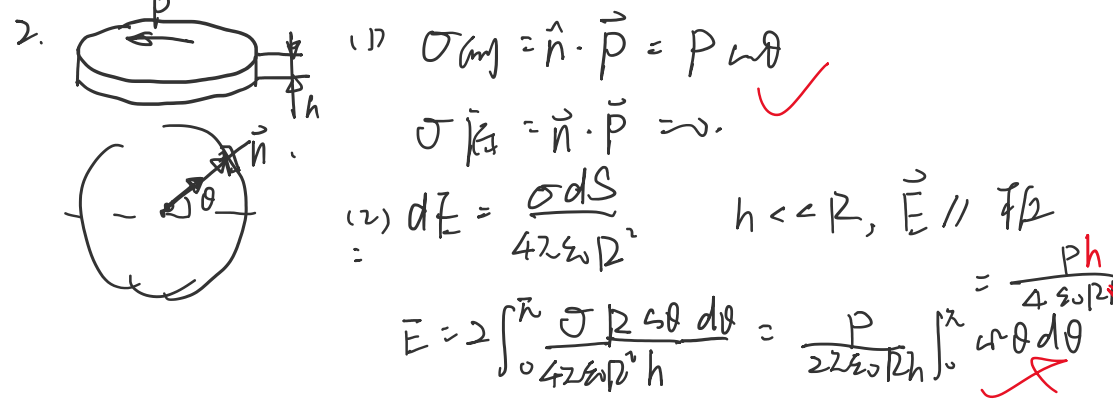 2.
P
h
n⃗
θ
(1) σ侧 = n̂ · P⃗ = P cosθ
σ底 = n⃗ · P⃗ = 0.
(2) dE = σdS / 4πε₀R² h << R, E⃗ // 平面
= Ph / 4ε₀R
E = 2∫₀^π σ R cosθ dθ / 4πε₀R² h = P / 2πε₀Rh ∫₀^π cos²θ dθ